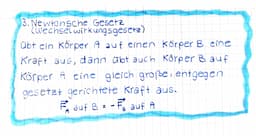 3. Newtonsche Gesetz
(Wechselwirkungsgesetz)
Übt ein Körper A auf einen Körper B eine
Kraft aus, dann übt auch Körper B auf
Körper A eine gleich große, entgegen
gesetzt gerichtete Kraft aus.
F⃗A auf B = -F⃗B auf A